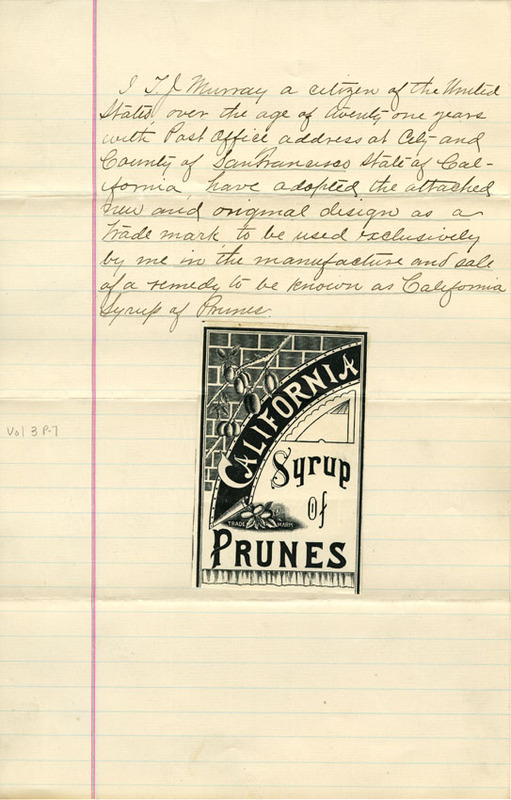 I T. J. Murray a citizen of the United
States, over the age of twenty one years
with Post Office address at City and
County of San Francisco State of Cal-
ifornia, have adopted the attached
new and original design as a
trade mark, to be used exclusively
by me in the manufacture and sale
of a remedy to be known as California
Syrup of Prunes.
CALIFORNIA
Syrup
of
TRADE MARK
PRUNES
Vol 3 P-7